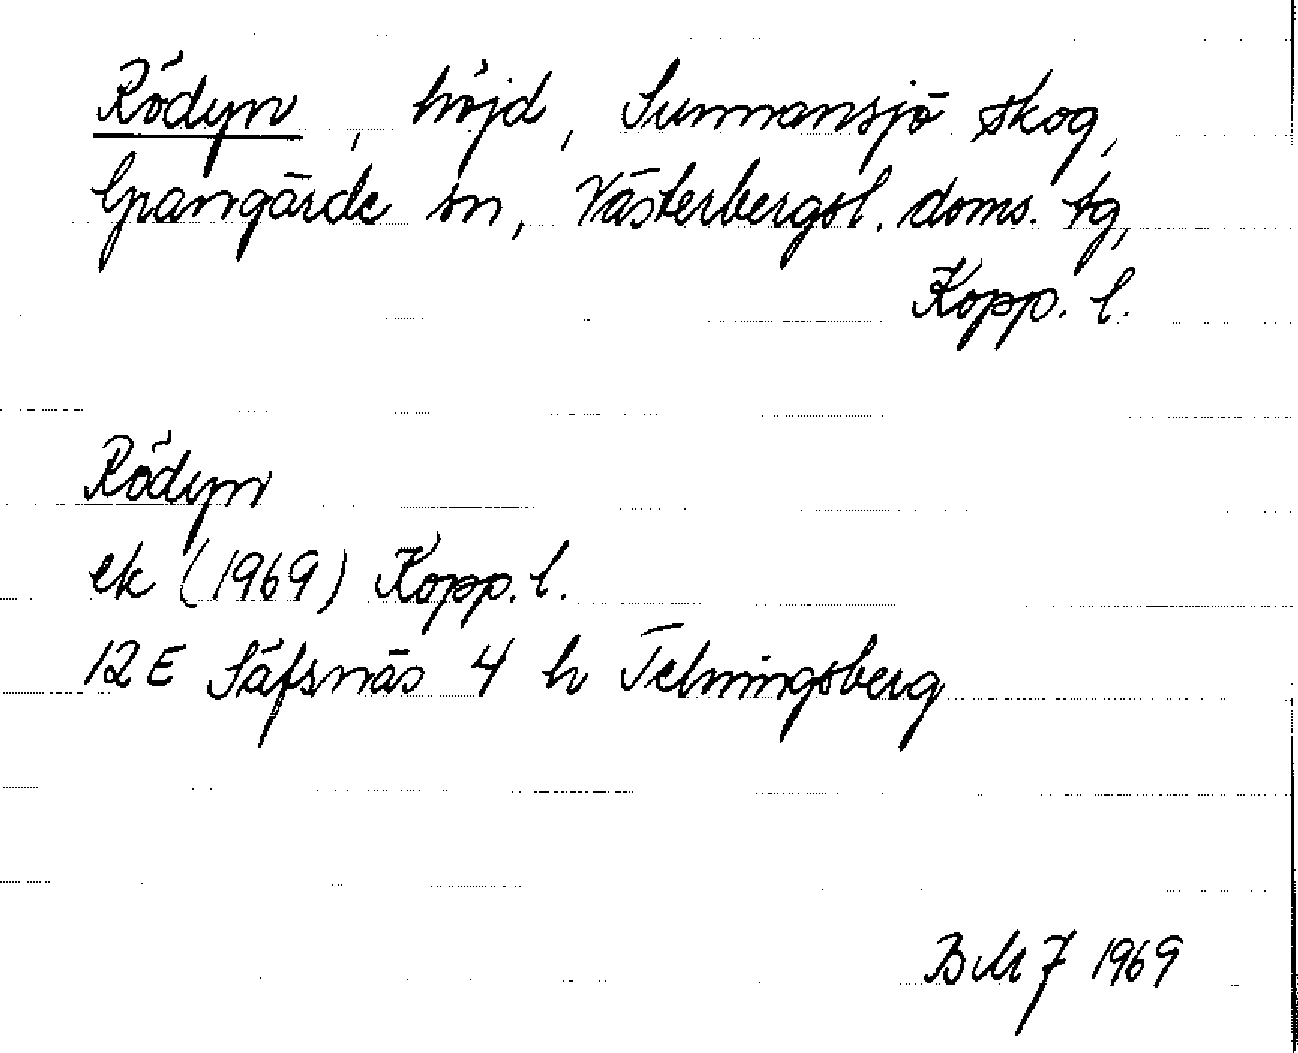 Rödyn, höjd, Sunnansjö skog,
Grangärde sn, Västerbergsl. doms. tg,
Kopp. l.
Rödyn
ek (1969) Kopp. l.
12 E Säfsnäs 4 h Telningsberg
BMJ 1969